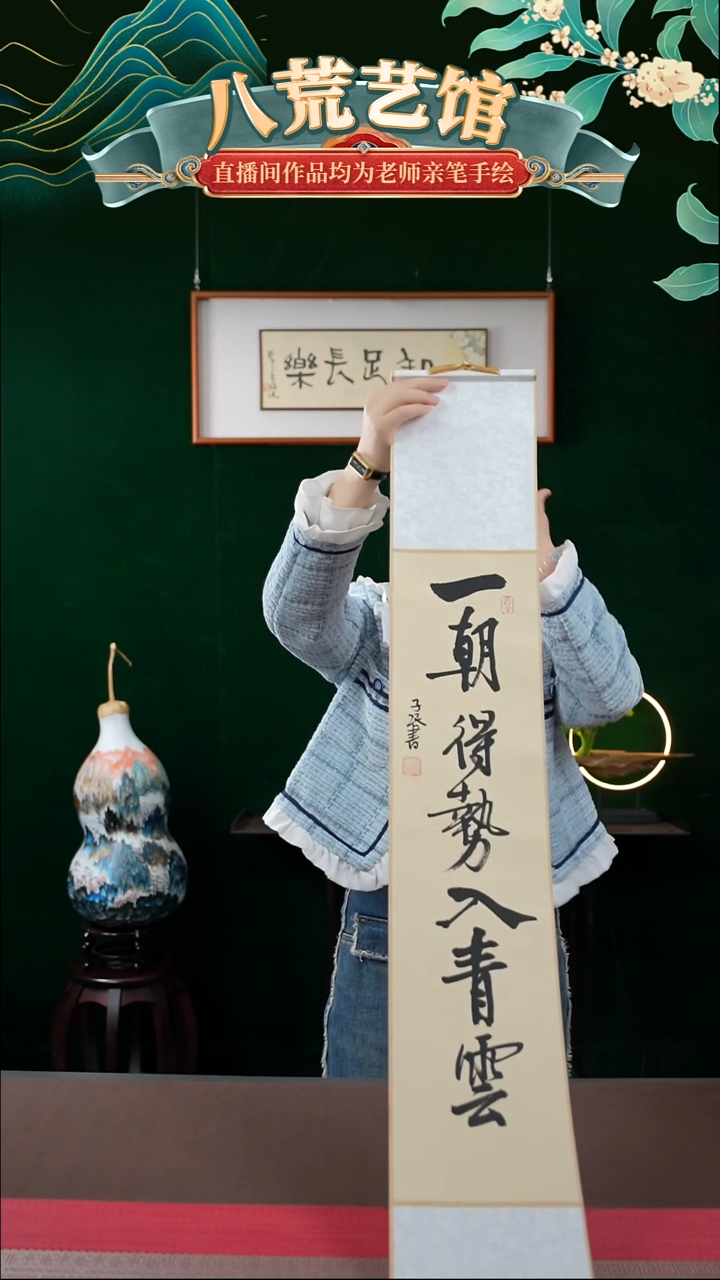 八荒艺馆
直播间作品均为老师亲笔手绘
樂長足知
一朝得勢入青雲
子張書